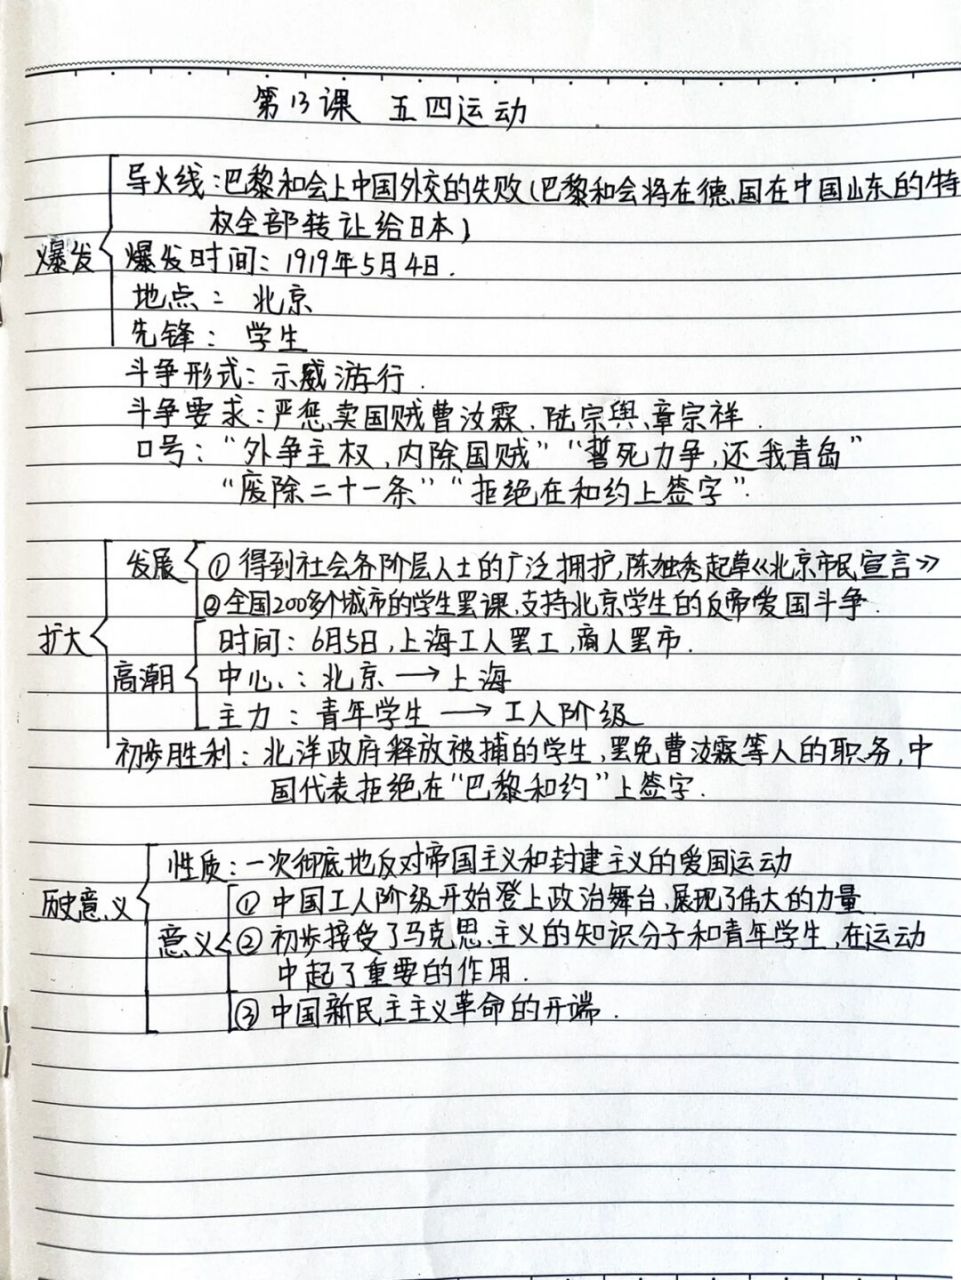 第13课 五四运动
导火线:巴黎和会上中国外交的失败(巴黎和会将在德国在中国山东的特
权全部转让给日本)
爆发
爆发时间:1919年5月4日.
地点:北京
先锋:学生
斗争形式:示威游行.
斗争要求:严惩卖国贼曹汝霖、陆宗舆、章宗祥.
口号:“外争主权,内除国贼”“誓死力争,还我青岛”
“废除二十一条”“拒绝在和约上签字”.
发展 ①得到社会各阶层人士的广泛拥护,陈独秀起草《北京市民宣言》
②全国200多个城市的学生罢课,支持北京学生的反帝爱国斗争.
扩大
时间:6月5日,上海工人罢工,商人罢市.
高潮 中心:北京→上海
主力:青年学生→工人阶级
初步胜利:北洋政府释放被捕的学生,罢免曹汝霖等人的职务,中
国代表拒绝在“巴黎和约”上签字.
性质:一次彻底地反对帝国主义和封建主义的爱国运动
历史意义
①中国工人阶级开始登上政治舞台,展现了伟大的力量
意义 ②初步接受了马克思主义的知识分子和青年学生,在运动
中起了重要的作用.
③中国新民主主义革命的开端.